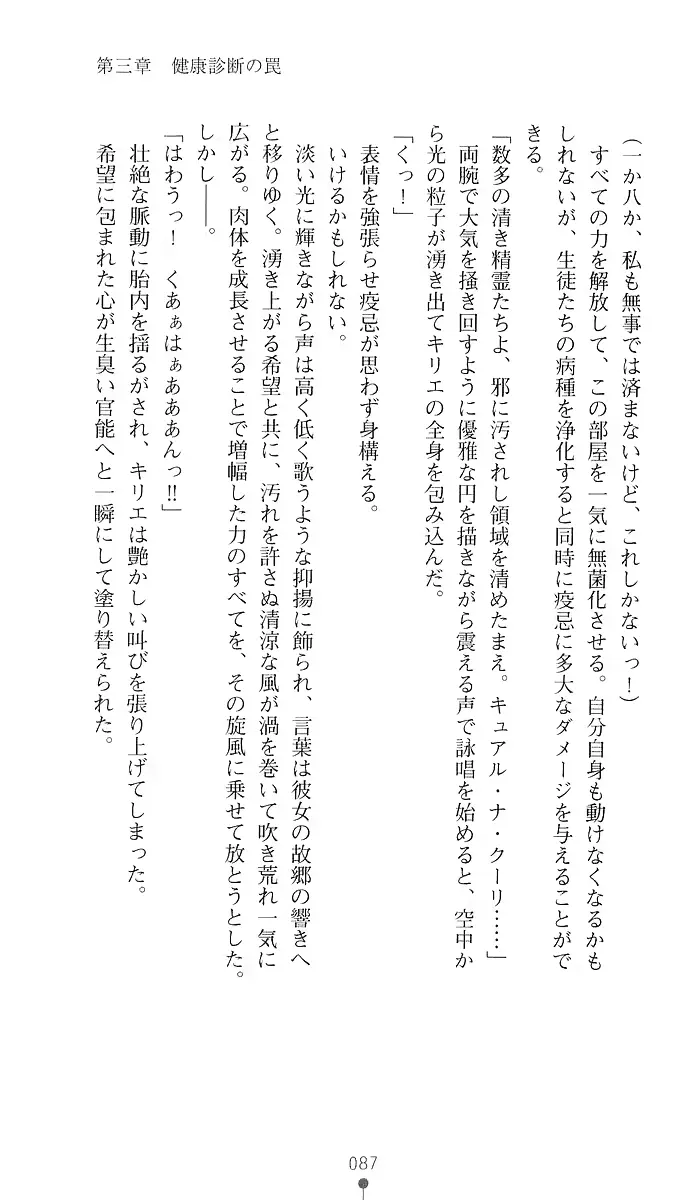 第三章　健康診断の罠
（一か八か、私も無事では済まないけど、これしかないっ！）
すべての力を解放して、この部屋を一気に無菌化させる。自分自身も動けなくなるかも
しれないが、生徒たちの病種を浄化すると同時に疫忌に多大なダメージを与えることがで
きる。
「数多の清き精霊たちよ、邪に汚されし領域を清めたまえ。キュアル・ナ・クーリ……」
両腕で大気を掻き回すように優雅な円を描きながら震える声で詠唱を始めると、空中か
ら光の粒子が湧き出てキリエの全身を包み込んだ。
「くっ！」
表情を強張らせ疫忌が思わず身構える。
いけるかもしれない。
淡い光に輝きながら声は高く低く歌うような抑揚に飾られ、言葉は彼女の故郷の響きへ
と移りゆく。湧き上がる希望と共に、汚れを許さぬ清涼な風が渦を巻いて吹き荒れ一気に
広がる。肉体を成長させることで増幅した力のすべてを、その旋風に乗せて放とうとした。
しかし――。
「はわうっ！　くあぁはぁあああんっ!!」
壮絶な脈動に胎内を揺るがされ、キリエは艶かしい叫びを張り上げてしまった。
希望に包まれた心が生臭い官能へと一瞬にして塗り替えられた。
087